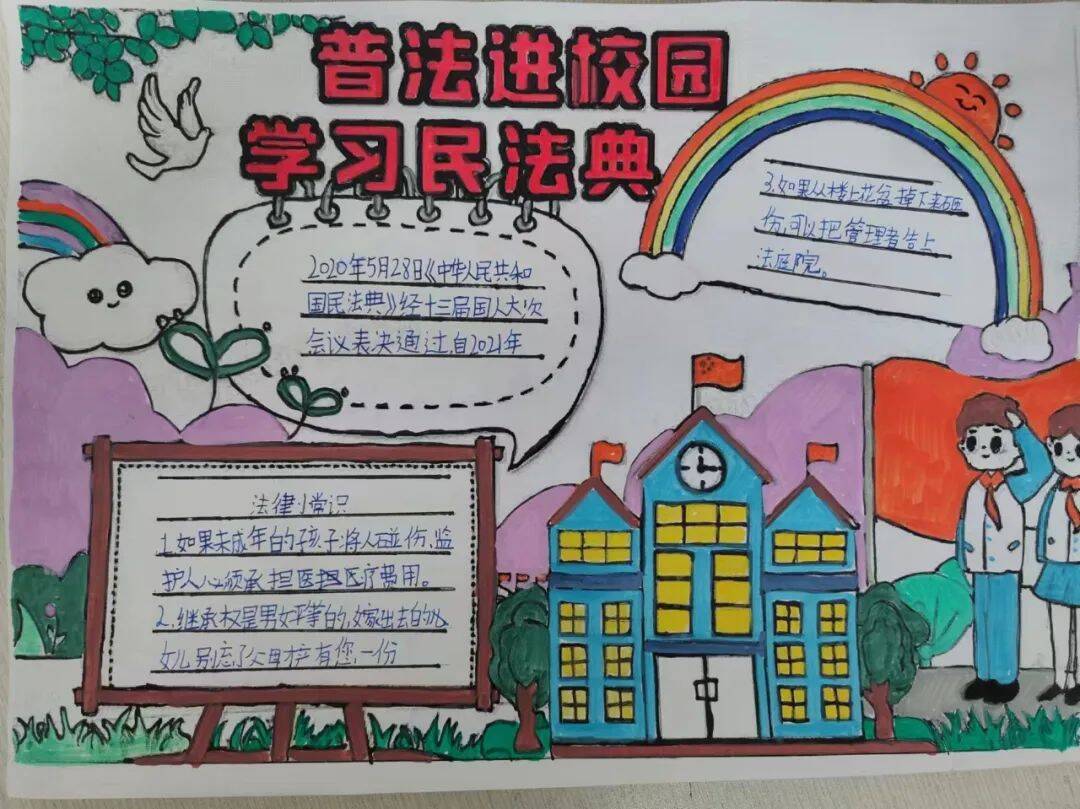 普法进校园
学习民法典
2020年5月28日《中华人民共和
国民法典》经十三届国人大次
会议表决通过,自2021年
3.如果从楼上花盆掉下来砸
伤,可以把管理者告上
法庭院。
法律小常识
1.如果未成年的孩子将人碰伤,监
护人必须承担医担医疗费用。
2.继承权是男女平等的,嫁出去的
女儿别忘了父母才产有您一份